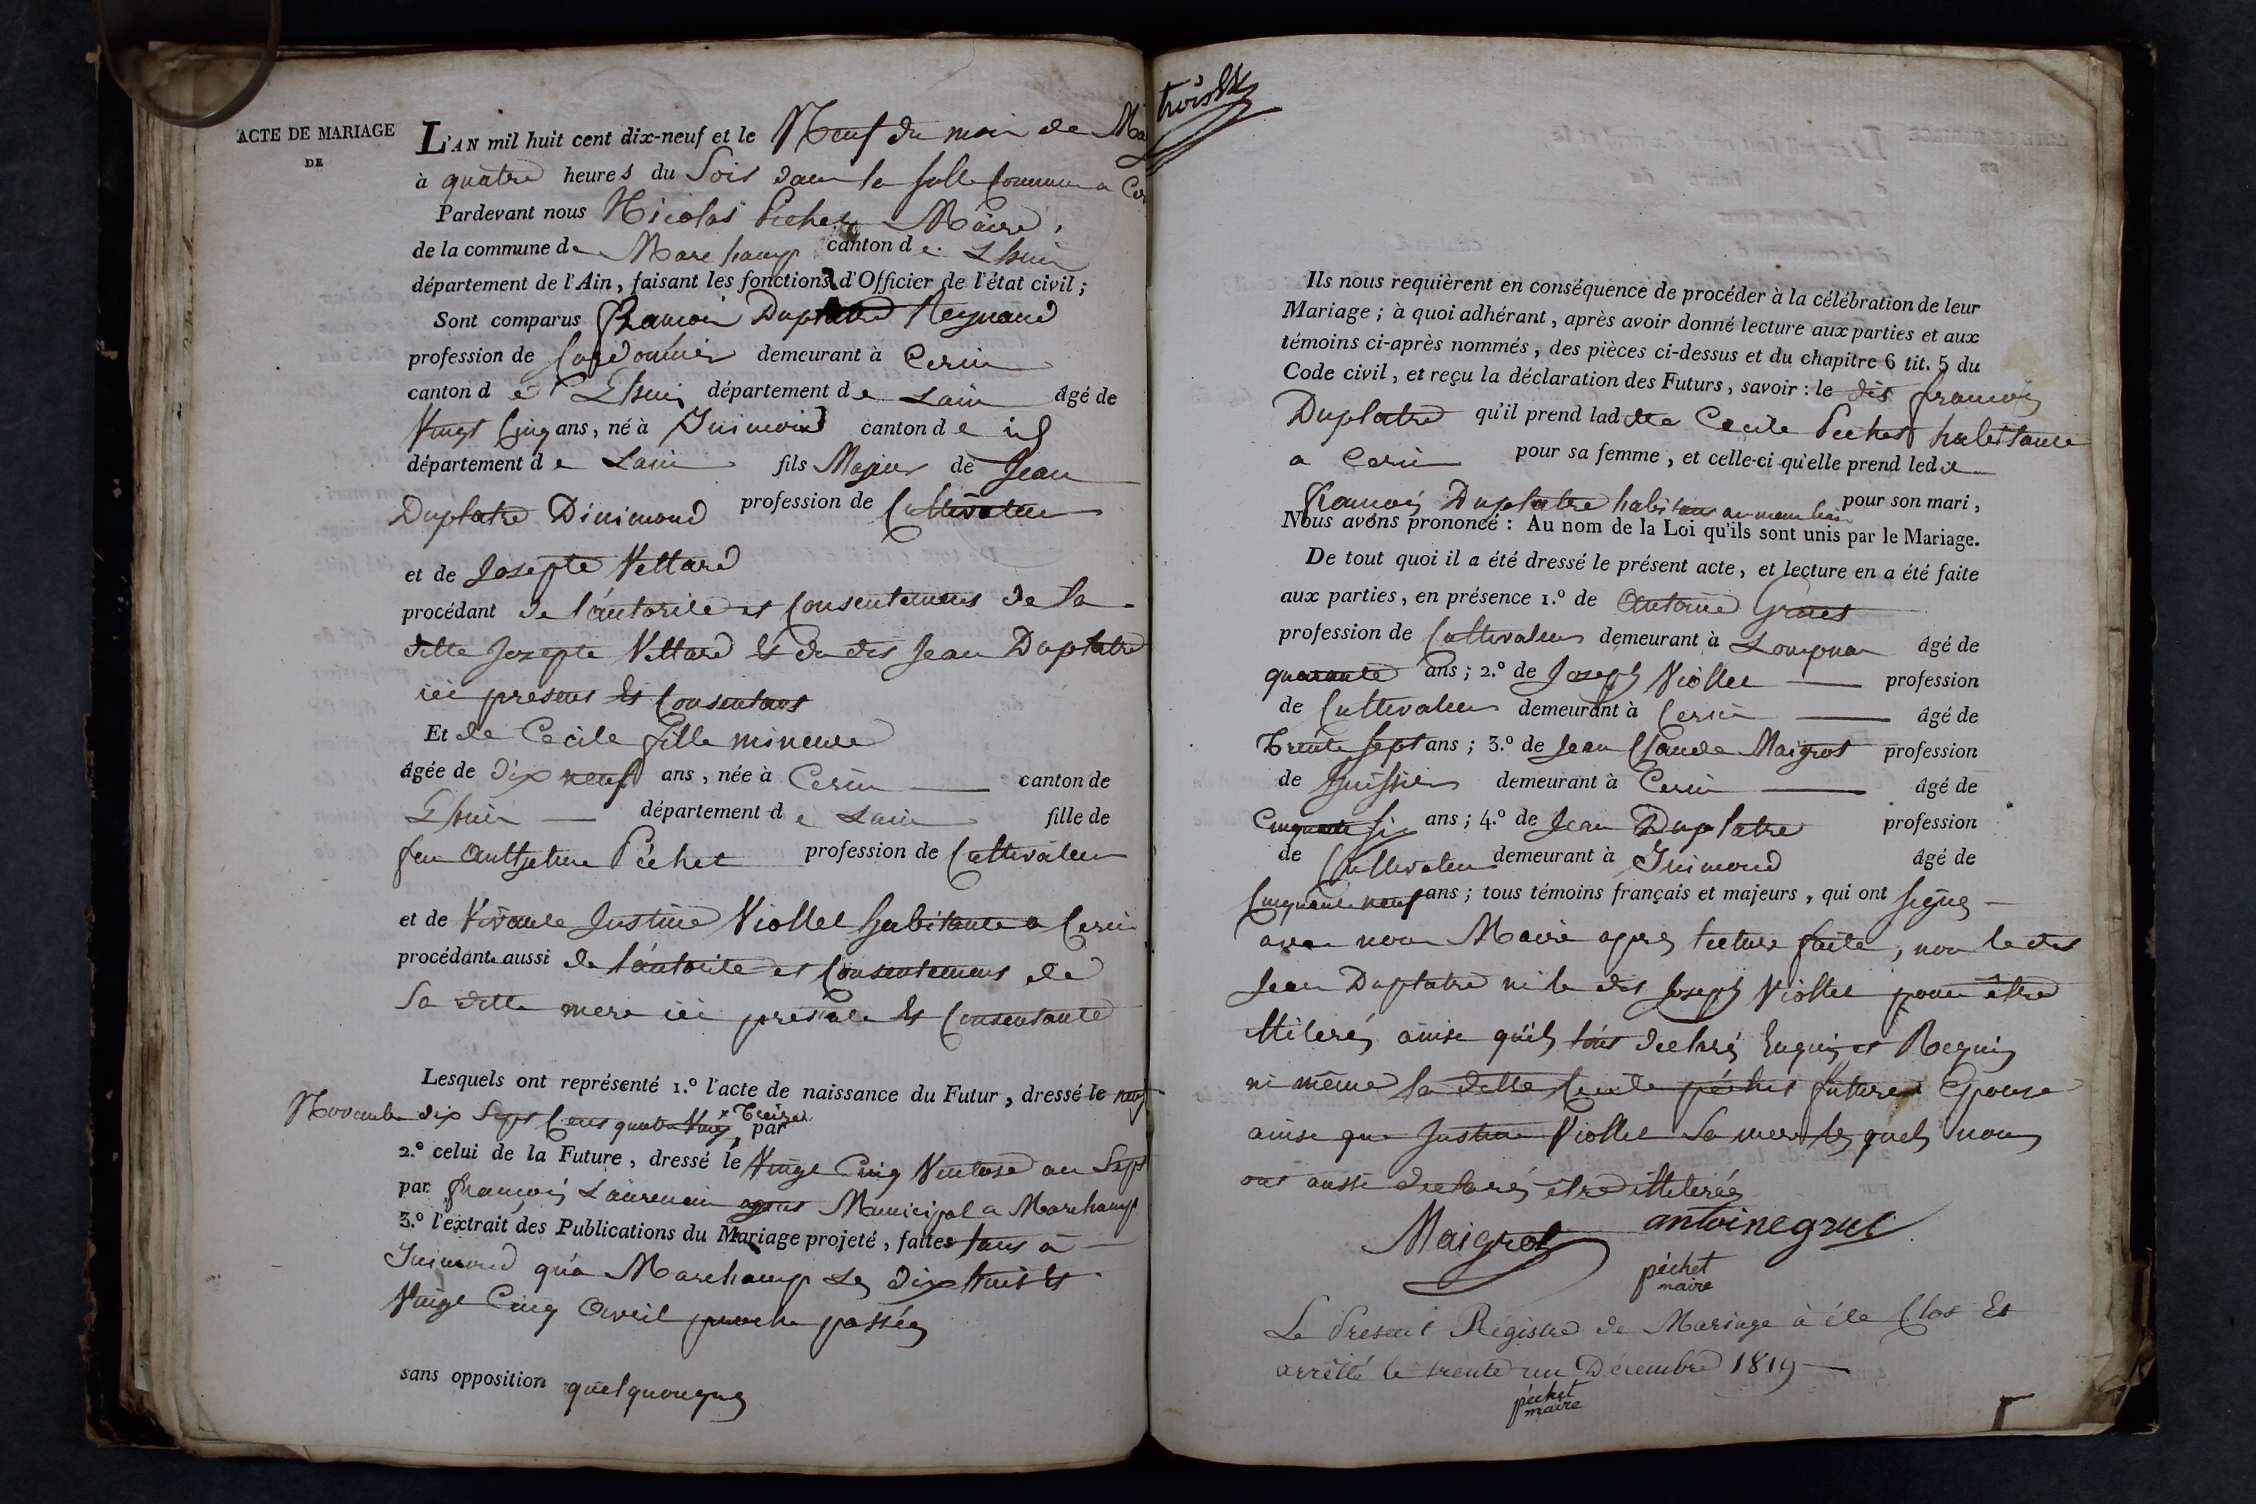 ACTE DE MARIAGE
DE
L'AN mil huit cent dix-neuf et le Neuf du mois de Ma
à quatre heures du Soir dans la salle Commune a Ce
Pardevant nous Nicolas Péchet Maire,
de la commune de Marchamp canton de Lhuis
département de l'Ain, faisant les fonctions d'Officier de l'état civil;
Sont comparus François Duplatre Reynaud
profession de Cordonnier demeurant à Cerin
canton de Lhuis département de Lain âgé de
Vingt Cinq ans, né à Inimond canton de id
département de Lain fils Majeur de Jean
Duplatre Dinimond profession de Cultivateur
et de Josepte Vettard
procédant de l'autorité et Consentement de la
ditte Josepte Vettard et du dit Jean Duplatre
ici presens et Consentans
Et de Cecile fille mineure
âgée de dix neuf ans, née à Cerin canton de
Lhuis département de Lain fille de
feu Anthelme Péchet profession de Cultivateur
et de Vivante Justine Viollet habitante a Cerin
procédante aussi de l'autorité et Consentement de
Sa ditte mere ici présente et Consentante
Lesquels ont représenté 1.º l'acte de naissance du Futur, dressé le neuf
Novembre dix Sept Cens quatre Vingt Treize par
2.º celui de la Future, dressé le Vingt Cinq Ventose an Sept
par François Laurencin agent Municipal a Marchamp
3.º l'extrait des Publications du Mariage projeté, faites tans a
Inimond qu'a Marchamp les dix huit et
Vingt Cinq Avril proche passés
sans opposition quelquonque
trois
Ils nous requièrent en conséquence de procéder à la célébration de leur
Mariage; à quoi adhérant, après avoir donné lecture aux parties et aux
témoins ci-après nommés, des pièces ci-dessus et du chapitre 6 tit. 5 du
Code civil, et reçu la déclaration des Futurs, savoir: le dit françois
Duplatre qu'il prend ladite Cecile Péchet habitante
a Cerin pour sa femme, et celle-ci qu'elle prend ledit
François Duplatre habitant au meme lieu pour son mari,
Nous avons prononcé: Au nom de la Loi qu'ils sont unis par le Mariage.
De tout quoi il a été dressé le présent acte, et lecture en a été faite
aux parties, en présence 1.º de Antoine Gruet
profession de Cultivateur demeurant à Lompnas âgé de
quarante ans; 2.º de Joseph Viollet profession
de Cultivateur demeurant à Cerin âgé de
Trente Sept ans; 3.º de Jean Claude Maigrot profession
de huissier demeurant à Cerin âgé de
Cinquante Six ans; 4.º de Jean Duplatre profession
de Cultivateur demeurant à Inimond âgé de
Cinquante neuf ans; tous témoins français et majeurs, qui ont signé
avec nous Maire après lecture faite, non le dit
Jean Duplatre ni le dit Joseph Viollet pour être
illiterés ainsi qu'ils l'ont déclaré Enquis et Requis
ni même la ditte Cecile péchet future Epouse
ainsi que Justine Viollet Sa mere lesquels nous
ont aussi déclarés être illiterés
Maigrot antoine gruet
péchet
maire
Le Present Régistre de Mariage à été Clos Et
arrêtté le trente un Décembre 1819
péchet
maire